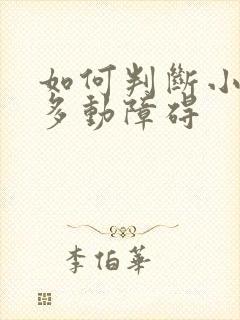 如何判斷小
多動障碍
李伯華